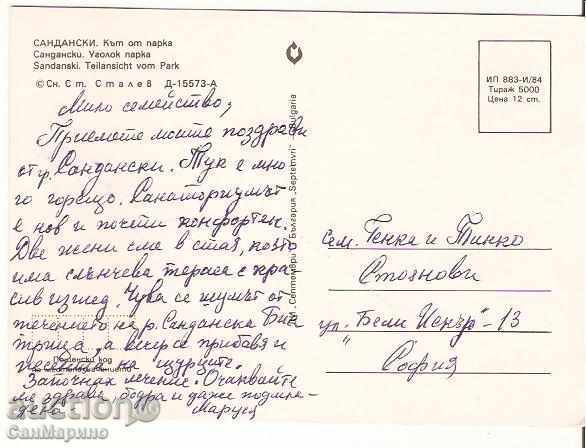 САНДАНСКИ. Кът от парка
Сандански. Уголок парка
Sandanski. Teilansicht vom Park
© Сн. Ст. Сталев Д-15573-А
ИП 883-И/84
Тираж 5000
Цена 12 ст.
„Септември“ България „Septemvri“ Bulgaria
Мило семейство,
Приемете моите поздрави
от гр. Сандански. Тук е мно-
го горещо. Санаториумът
е нов и почти конфортен.
Две жени сме в стая, която
има слънчева тераса с кра-
сив изглед. Чува се шумът от
течението на р. Санданска Бис
трица, а вечер се прибавя и
песента на щурците.
Започнах лечение. Очаквайте
ме здрава, бодра и даже подмла-
дена Маруся
Пощенски код
на местоназначението
сем. Генка и Тинко
Стоянови
ул. "Бели Искър" - 13
София
auction
СанМарино